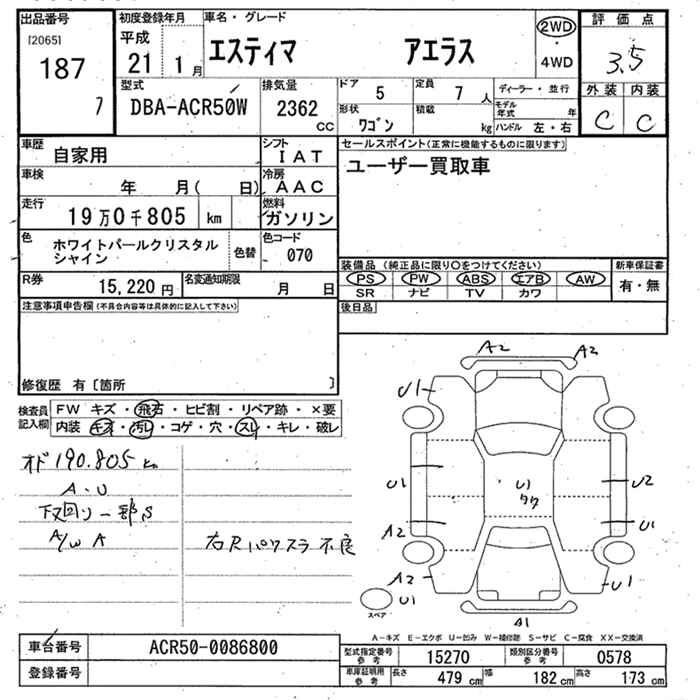 出品番号
[2065]
187
7
初度登録年月
平成
21 1月
車名・グレード
エスティマ アエラス
2WD
4WD
評価点
3.5
外装 内装
C C
型式
DBA-ACR50W
排気量
2362
cc
ドア 5
定員 7人
形状 ワゴン
積載 kg
ディーラー・並行
モデル年式 年
ハンドル 左・右
車歴 自家用
シフト IAT
車検 年 月( 日)
冷房 AAC
走行 19万0千805 km
燃料 ガソリン
色 ホワイトパールクリスタル
シャイン
色替
色コード 070
R券 15,220円
名変通知期限 月 日
セールスポイント(正常に機能するものに限ります)
ユーザー買取車
装備品 (純正品に限り○をつけてください)
PS PW ABS エアB AW
SR ナビ TV カワ
新車保証書
有・無
後日品
注意事項申告欄 (不具合内容等は具体的に記入して下さい)
修復歴 有〔箇所 〕
検査員
記入欄
FW キズ・飛石・ヒビ割・リペア跡・×要
内装 キズ・汚レ・コゲ・穴・スレ・キレ・破レ
オド 190.805 km
A・U
下回り一部S
A/W A
右Rパワスラ不良
A2
A2
U1
U1
U1
タワ
U2
A2
U1
A2
U1
U1
スペア
A1
A－キズ E－エクボ U－凹み W－補修跡 S－サビ C－腐食 XX－交換済
車台番号 ACR50-0086800
登録番号
型式指定番号
参考
15270
類別区分番号
参考
0578
車庫証明用
参考
長さ 479cm
幅 182cm
高さ 173cm